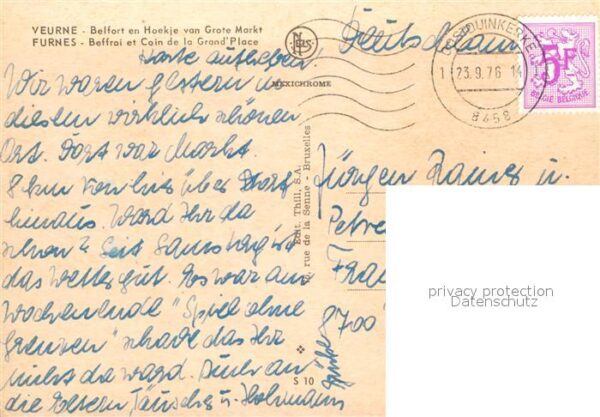 VEURNE - Belfort en Hoekje van Grote Markt
FURNES - Beffroi et Coin de la Grand'Place
Karte aufheben!
Wir waren gestern in
diesem wirklich schönen
Ort. Dort war Markt.
8 km von hier über Dorf
hinaus. Ward Ihr da
schon? Seit Samstag ist
das Wetter gut. Es war am
Wochenende "Spiel ohne
Grenzen" schade das Ihr
nicht da ward. Auch an
die Eltern u.
NELS
MEXICHROME
Edit. Thill, S.A.
rue de la Senne - Bruxelles
S 10
Deutschland
OOSTDUINKERKE
23.9.76 14
8458
5F
BELGIE BELGIQUE
Jürgen u.
Petra
8700
Grüße
privacy protection
Datenschutz